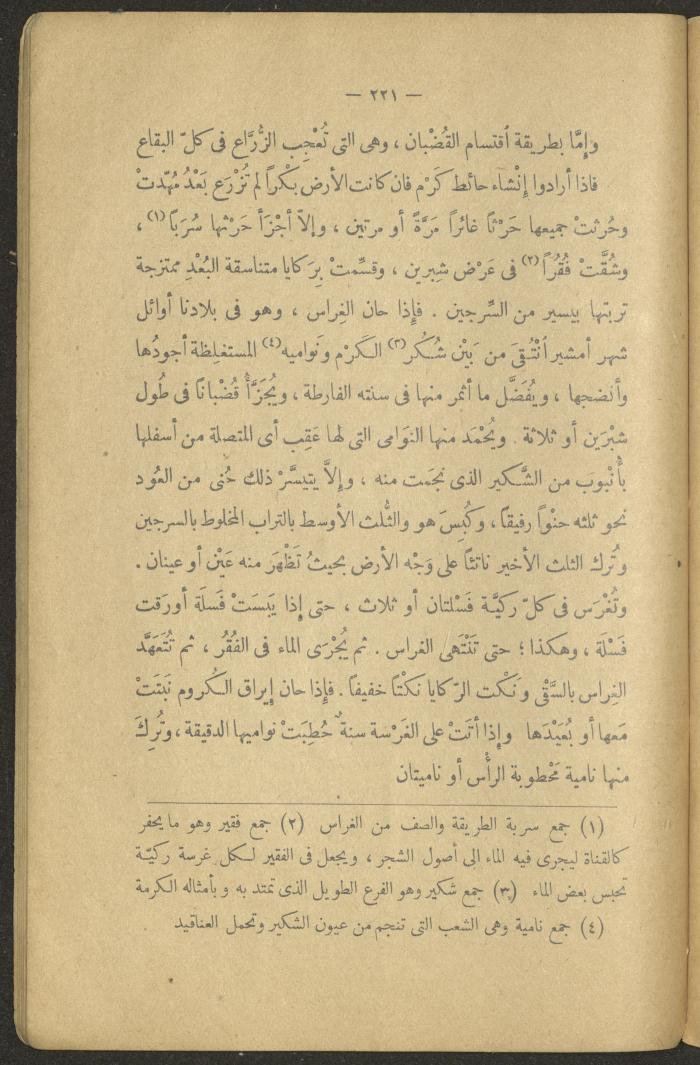 — ٢٢١ —
وإمَّا بطريقة أقتسام القُضْبان ، وهى التى تُعْجِب الزُّرَّاع فى كلّ البقاع
فاذا أرادوا إنْشَاء حائط كَرْم فان كانت الأرض بكْراً لم تُزْرَع بَعْدُ مُهِّدتْ
وحُرثتْ جميعها حَرْثاً غائراً مَرَّةً أو مرتين ، وإلاّ أجْزَأ حَرْثها سُرَباً (١) ،
وشُقَّتْ فُقُراً (٢) فى عَرْض شِبرين ، وقسِّمتْ بِرَكايا متناسقة البُعْدِ ممتزجة
تربتها بيسير من السِّرجين . فإذا حان الغِراس ، وهو فى بلادنا أوائل
شهر أمشير أنتُقىَ من بَيْن شُكُر (٣) الكَرْم ونَواميه (٤) المستغلِظة أجودُها
وأنضجها ، ويُفَضَّل ما أثمر منها فى سنته الفارطة ، ويُجَزَّأُ قُضْباناً فى طُول
شبْرَين أو ثلاثة . ويُحْمَد منها النَوامى التى لها عَقِب أى المتصلة من أسفلها
بأُنْبوبَ من الشَّكير الذى نجَمت منه ، وإلاَّ يتيسَّرْ ذلك حُنى من العُود
نحو ثلثه حنْواً رفيقاً ، وكُبِسَ هو والثُلث الأوسط بالتراب المخلوط بالسرجين
وتُرك الثلث الأخير ناتئاً على وَجْه الأرض بحيثُ تَظْهَر منه عَيْن أو عينان .
وتُغْرَس فى كلّ ركيَّة فَسْلتان أو ثلاث ، حتى إذا يَبسَتْ فَسلَة أورَقت
فَسْلَة ، وهكذا ؛ حتى تَنْتَهى الغراس . ثم يُجْرَى الماء فى الفُقُر ، ثم تُتَعهَّد
الغِراس بالسَّقْى ونَكْت الرّكايا نَكْتاً خفيفاً . فإذا حان إيراق الكُروم نَبَتَتْ
مَعها أو بُعَيْدَها وإذا أتَتْ على الغَرْسة سنة حُطِبَتْ نواميها الدقيقة ، وتُرِكَ
منها نامية مَحْطوبة الرأس أو ناميتان
(١) جمع سربة الطريقة والصف من الغراس (٢) جمع فقير وهو ما يحفر
كالقناة ليجرى فيه الماء الى أصول الشجر ، ويجعل فى الفقير لكل غرسة ركيّة
تحبس بعض الماء (٣) جمع شكير وهو الفرع الطويل الذى تمتد به وبأمثاله الكرمة
(٤) جمع نامية وهى الشعب التى تنجم من عيون الشكير وتحمل العناقيد